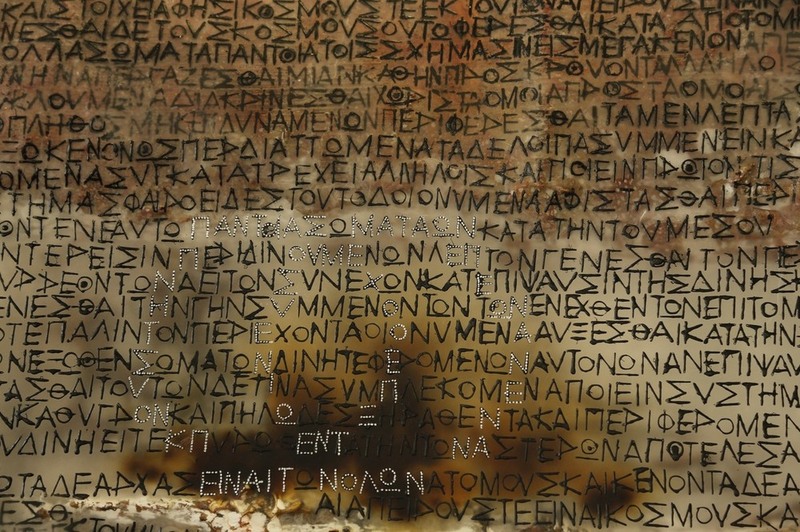 ΣΤΟΙΧΕΙΑΦΗΣΙΚΟΣΜΟΥΣΤΕ
ΝΕΣΘΑΙΔΕΤΟΥΣΚΟΣΜΟΥΣΟΥΤΩΦΕΡΕΣΘΑΙΚΑΤΑΑΠΟΤΟΜΗ
ΟΛΛΑΣΩΜΑΤΑΠΑΝΤΟΙΑΤΟΙΣΣΧΗΜΑΣΙΝΕΙΣΜΕΓΑΚΕΝΟΝΑΠΕ
ΙΝΗΝΑΠΕΡΓΑΖΕΣΘΑΙΜΙΑΝΚΑΘΗΝΠΡΟΣΚΡΟΥΟΝΤΑΑΛΛΗΛΟΙ
ΥΚΛΟΥΜΕΝΑΔΙΑΚΡΙΝΕΣΘΑΙΧΩΡΙΣΤΑΟΜΟΙΑΠΡΟΣΤΑ
ΟΠΛΗΘΟΣΜΗΚΕΤΙΔΥΝΑΜΕΝΩΝΠΕΡΙΦΕΡΕΣΘΑΙΤΑΜΕΝΛΕΠΤΑ
ΞΩΚΕΝΟΝΩΣΠΕΡΔΙΑΤΤΩΜΕΝΑΤΑΔΕΛΟΙΠΑΣΥΜΜΕΝΕΙΝΚΑ
ΟΜΕΝΑΣΥΓΚΑΤΑΤΡΕΧΕΙΑΛΛΗΛΟΙΣΚΑΙΠΟΙΕΙΝΠΡΩΤΟΝΤΙΣ
ΣΤΗΜΑΣΦΑΙΡΟΕΙΔΕΣΤΟΥΤΟΔΟΙΟΝΥΜΕΝΑΑΦΙΣΤΑΣΘΑΙΠΕΡΙ
ΟΝΤΕΝΕΑΥΤΩΠΑΝΤΟΙΑΣΩΜΑΤΑΩΝΚΑΤΑΤΗΝΤΟΥΜΕΣΟΥ
ΝΤΕΡΕΙΣΙΝΠΕΡΙΔΙΝΟΥΜΕΝΩΝΛΕΠΤΟΝΓΕΝΕΣΘΑΙΤΟΝΠΕ
ΥΡΡΕΟΝΤΩΝΑΕΙΤΩΝΣΥΝΕΧΩΝΚΑΤΕΠΙΨΑΥΣΙΝΤΗΣΔΙΝΗΣΚ
ΕΣΘΑΙΤΗΝΓΗΝΣΥΜΜΕΝΟΝΤΩΝΤΩΝΕΝΕΧΘΕΝΤΩΝΕΠΙΤΟΜ
ΟΤΕΠΑΛΙΝΤΟΝΠΕΡΙΕΧΟΝΤΑΟΙΟΝΥΜΕΝΑΑΥΞΕΣΘΑΙΚΑΤΑΤΗΝ
ΝΕΞΩΘΕΝΣΩΜΑΤΩΝΔΙΝΗΤΕΦΕΡΟΜΕΝΟΝΑΥΤΟΝΩΝΑΝΕΠΙΨΑΥ
ΑΣΘΑΙΤΟΥΤΩΝΔΕΤΙΝΑΣΥΜΠΛΕΚΟΜΕΝΑΠΟΙΕΙΝΣΥΣΤΗΜ
ΝΚΑΘΥΓΡΟΝΚΑΙΠΗΛΩΔΕΣΞΗΡΑΘΕΝΤΑΚΑΙΠΕΡΙΦΕΡΟΜΕΝ
ΥΔΙΝΗΕΙΤΕΚΠΥΡΩΘΕΝΤΑΤΗΝΤΩΝΑΣΤΕΡΩΝΑΠΟΤΕΛΕΣΑ
ΩΤΑΔΕΑΡΧΑΣΕΙΝΑΙΤΩΝΟΛΩΝΑΤΟΜΟΥΣΚΑΙΚΕΝΟΝΤΑΔΕΑ
ΑΠΕΙΡΟΥΣΤΕΕΙΝΑΙΚΟΣΜΟΥΣΚΑ